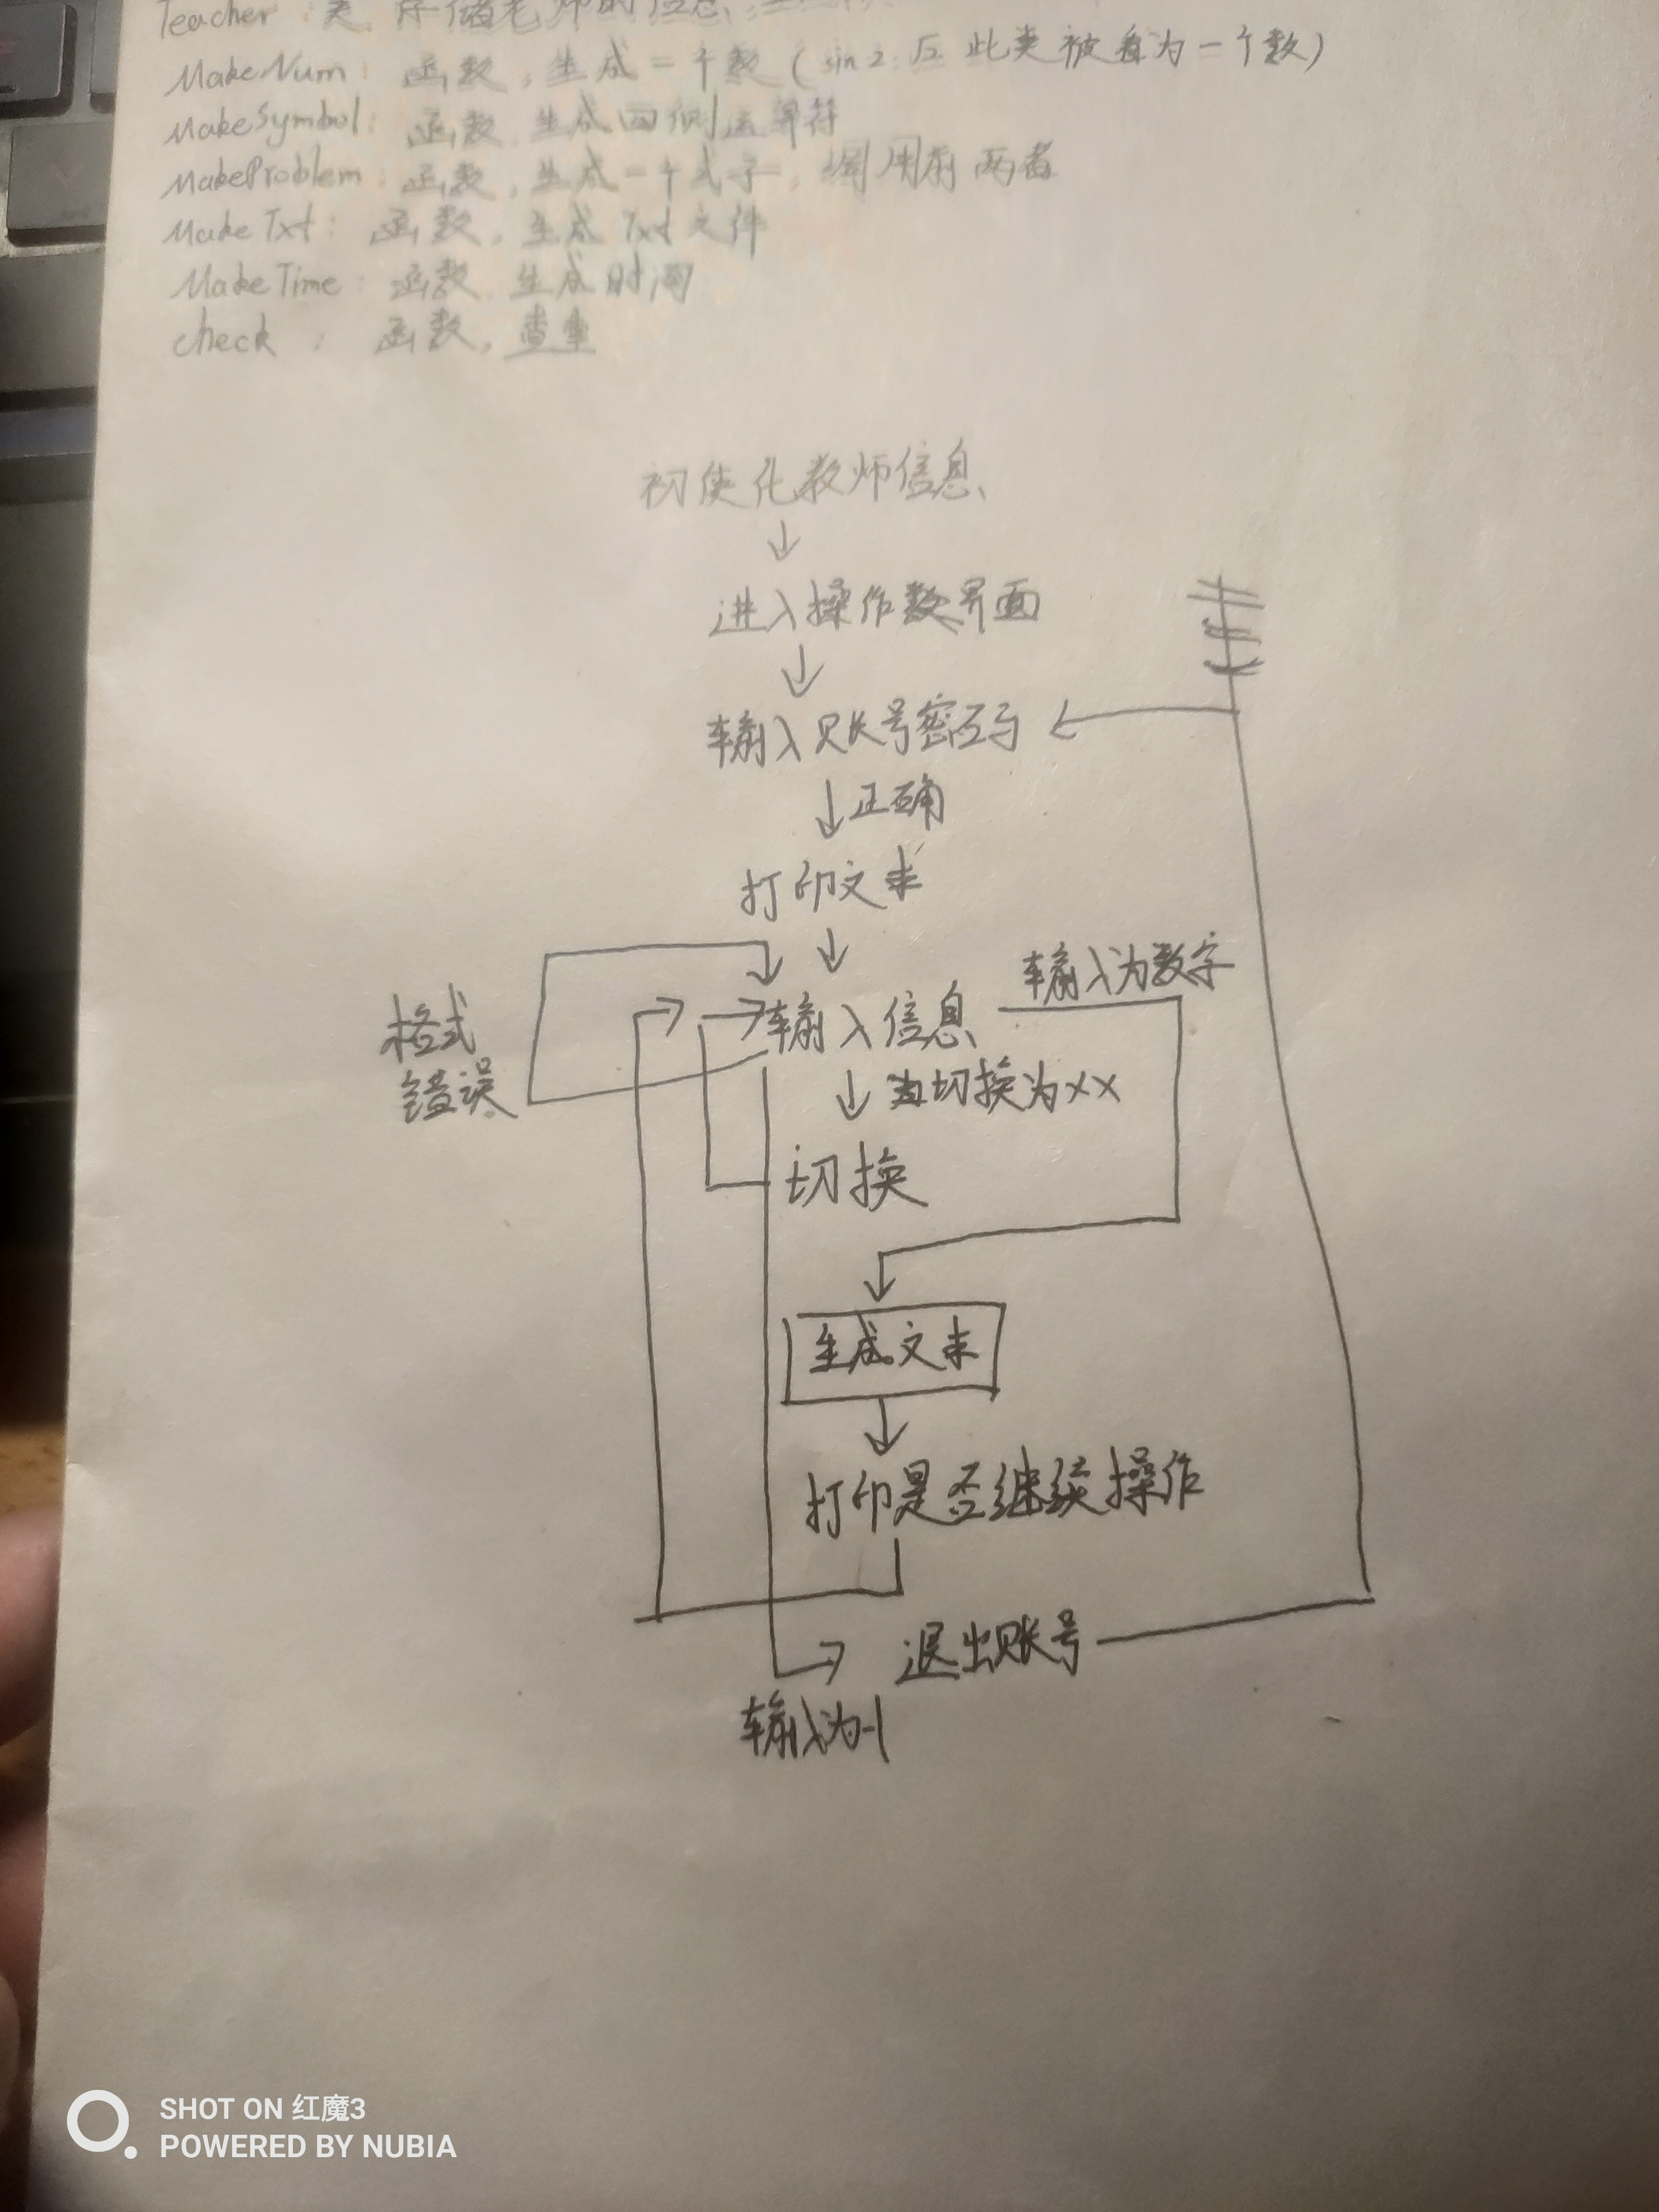 Teacher：类，存储老师的信息
MakeNum：函数，生成一个数（sin2，√2 此类被看为一个数）
MakeSymbol：函数，生成四则运算符
MakeProblem：函数，生成一个式子，调用前两者
MakeTxt：函数，生成Txt文件
MakeTime：函数，生成时间
check：函数，查重
初使化教师信息
进入操作数界面
输入账号密码
正确
打印文末
输入为数字
格式
错误
输入信息
当切换为××
切换
生成文末
打印是否继续操作
退出账号
输入为-1
SHOT ON 红魔3
POWERED BY NUBIA